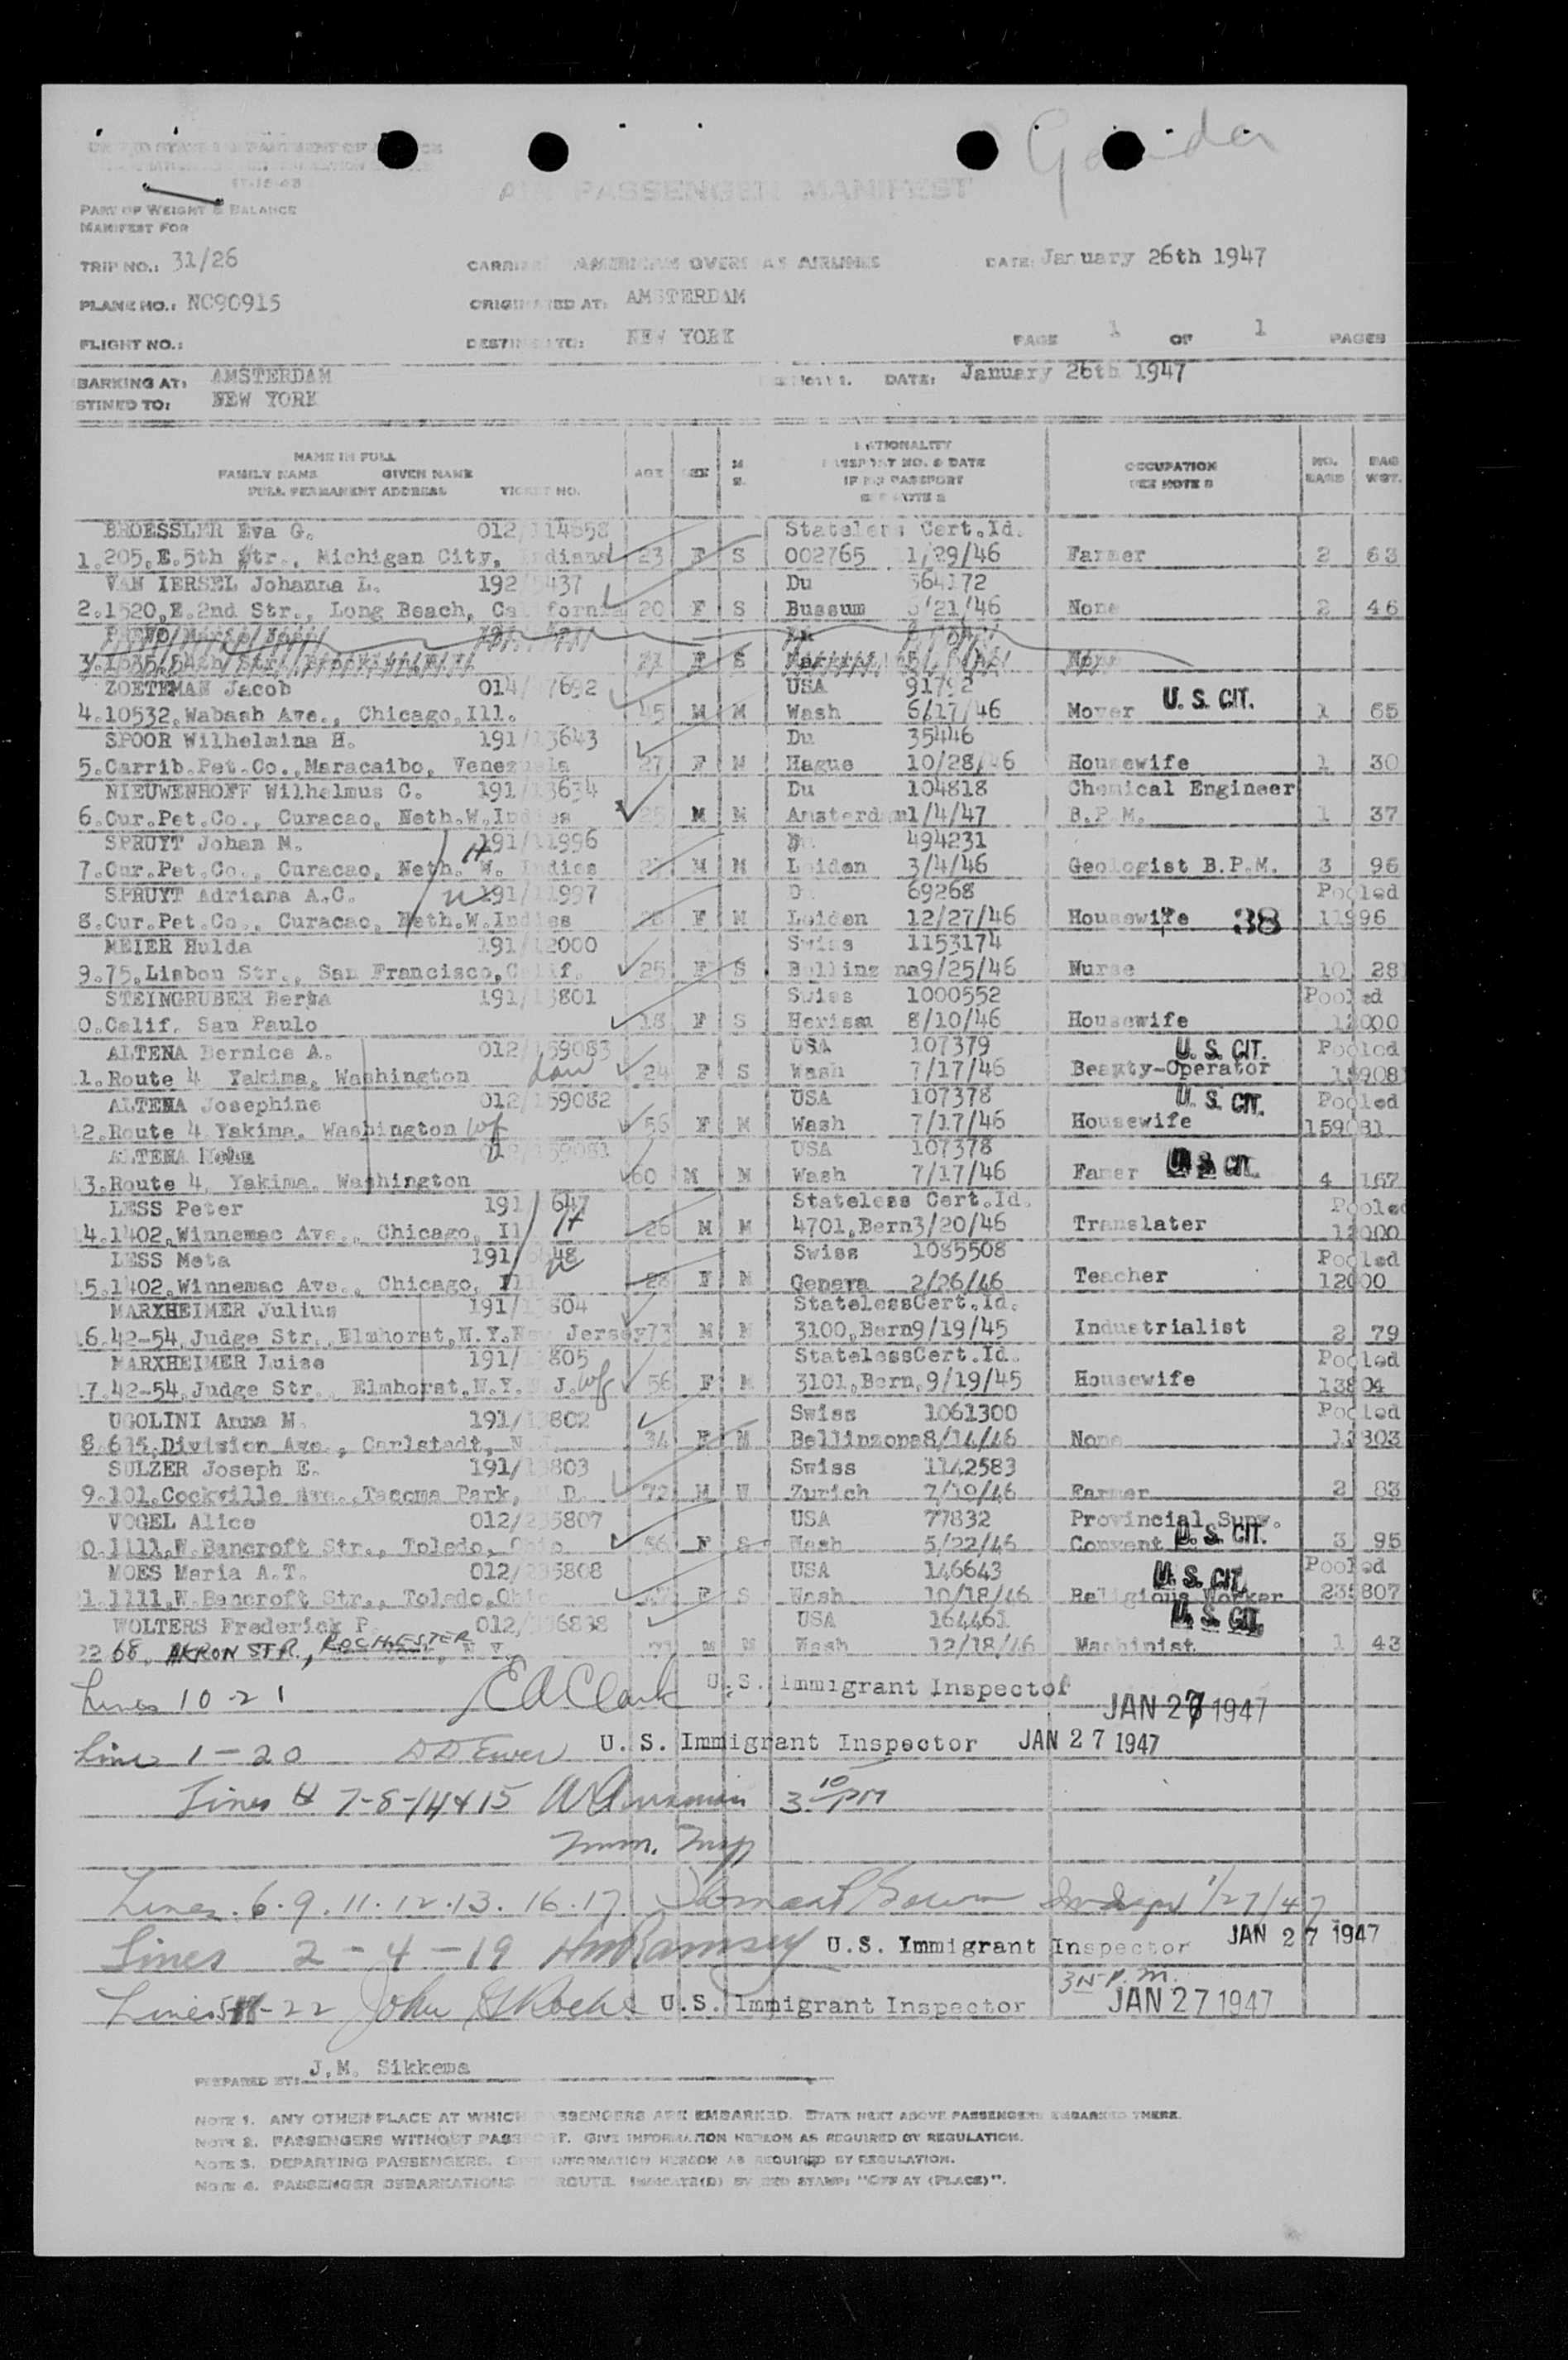 Gander
AIR PASSENGER MANIFEST
PART OF WEIGHT & BALANCE
MANIFEST FOR
TRIP NO.: 31/26 CARRIER: AMERICAN OVERSEAS AIRLINES DATE: January 26th 1947
PLANE NO.: NC90915 ORIGINATED AT: AMSTERDAM
FLIGHT NO.: DESTINED TO: NEW YORK PAGE 1 OF 1 PAGES
BARKING AT: AMSTERDAM DATE: January 26th 1947
STINED TO: NEW YORK
NAME IN FULL
FAMILY NAME GIVEN NAME
FULL PERMANENT ADDRESS TICKET NO. AGE SEX M S NATIONALITY PASSPORT NO. & DATE IF NO PASSPORT SEE NOTE 2 OCCUPATION SEE NOTE 3 NO. BAGS BAG WGT.
BROESSLER Eva G. 012/ Stateless Cert.Id.
1.205.E.5th Str., Michigan City, Indiana 23 F S 002765 1/29/46 Farmer 2 63
VAN IERSEL Johanna L. 192 437 Du 564172
2.1520.E.2nd Str., Long Beach, California 20 F S Bussum /21/46 None 2 46
ZOETEMAN Jacob 014/ 7692 USA 91792
4.10532.Wabash Ave., Chicago, Ill. 45 M M Wash 6/17/46 Mover U. S. CIT. 1 65
SPOOR Wilhelmina H. 191/13643 Du 35446
5.Carrib.Pet.Co.,Maracaibo, Venezuela 27 F M Hague 10/28/46 Housewife 1 30
NIEUWENHOFF Wilhelmus C. 191/13634 Du 104818 Chemical Engineer
6.Cur.Pet.Co., Curacao, Neth.W.Indies M M Amsterdam1/4/47 B.P.M. 1 37
SPRUYT Johan M. 191/11996 494231
7.Cur.Pet.Co., Curacao, Neth. W. Indies M M Leiden 3/4/46 Geologist B.P.M. 3 96
SPRUYT Adriana A.C. 191/11997 69268 Pooled
8.Cur.Pet.Co., Curacao, Neth.W.Indies F M Leiden 12/27/46 Housewife 38 11996
MEIER Hulda 191/12000 Swiss 1153174
9.75.Lisbon Str., San Francisco,Calif. 25 F S Bellinzona9/25/46 Nurse 10 28
STEINGRUBER Berta 191/13801 Swiss 1000552 Pooled
0.Calif. San Paulo 18 F S Herisau 8/10/46 Housewife 12000
ALTENA Bernice A. 012/159083 USA 107379 U. S. CIT. Pooled
1.Route 4 Yakima, Washington dau 24 F S Wash 7/17/46 Beauty-Operator 15908
ALTENA Josephine 012/159082 USA 107378 U. S. CIT. Pooled
2.Route 4 Yakima, Washington wf 56 F M Wash 7/17/46 Housewife 159081
ALTENA 012/159081 USA 107378
3.Route 4, Yakima, Washington 60 M M Wash 7/17/46 Famer U. S. CIT. 4 167
LESS Peter 191/ 647 Stateless Cert.Id. Pooled
4.1402.Winnemac Ave., Chicago, Il H 26 M M 4701.Bern3/20/46 Translater 12000
LESS Meta 191/ 648 Swiss 1085508 Pooled
5.1402.Winnemac Ave., Chicago, Ill W 28 F M Geneva 2/26/46 Teacher 12000
MARXHEIMER Julius 191/13804 StatelessCert.Id.
6.42-54.Judge Str.,Elmhorst,N.Y.New Jersey73 M M 3100.Bern9/19/45 Industrialist 2 79
MARXHEIMER Luise 191/13805 StatelessCert.Id. Pooled
7.42-54.Judge Str., Elmhorst.N.Y. J. wf 56 F M 3101.Bern.9/19/45 Housewife 13804
UGOLINI Anna M. 191/13802 Swiss 1061300 Pooled
8.615.Division Ave., Carlstadt, N. 34 F M Bellinzona8/14/46 None 13803
SULZER Joseph E. 191/13803 Swiss 1142583
9.101.Cockville Ave.,Tacoma Park, D. 72 M W Zurich 7/19/46 Farmer 2 83
VOGEL Alice 012/235807 USA 77832 Provincial Supv.
0.1111.W.Bancroft Str., Toledo, Ohio 56 F S Wash 5/22/46 Convent U. S. CIT. 3 95
MOES Maria A.T. 012/235808 USA 146643 U. S. CIT. Pooled
1.1111.W.Bancroft Str., Toledo,Ohio F S Wash 10/18/46 Religious Worker 235807
WOLTERS Frederick P. 012/ 6838 USA 164461 U. S. CIT.
22 68. AKRON STR., ROCHESTER, N.Y. M Wash 12/18/46 Machinist 1 43
Lines 10-21 EAClark U.S. Immigrant Inspector JAN 27 1947
Lines 1-20 DD Ewer U. S. Immigrant Inspector JAN 27 1947
Lines # 7-8-14 & 15 3 10 PM
Imm. Insp
Lines. 6. 9. 11. 12. 13. 16. 17. 1/27/47
Lines 2-4-19 HM Ramsey U.S. Immigrant Inspector JAN 27 1947
Lines -22 John U.S. Immigrant Inspector 3 15 P.M. JAN 27 1947
PREPARED BY: J.M. Sikkema
NOTE 1. ANY OTHER PLACE AT WHICH PASSENGERS ARE EMBARKED. STATE NEXT ABOVE PASSENGERS EMBARKED THERE.
NOTE 2. PASSENGERS WITHOUT PASSPORT. GIVE INFORMATION HEREON AS REQUIRED BY REGULATION.
NOTE 3. DEPARTING PASSENGERS. GIVE INFORMATION HEREON AS REQUIRED BY REGULATION.
NOTE 4. PASSENGER DEBARKATIONS ROUTE. INDICATE(D) BY RED STAMP: "OFF AT (PLACE)".